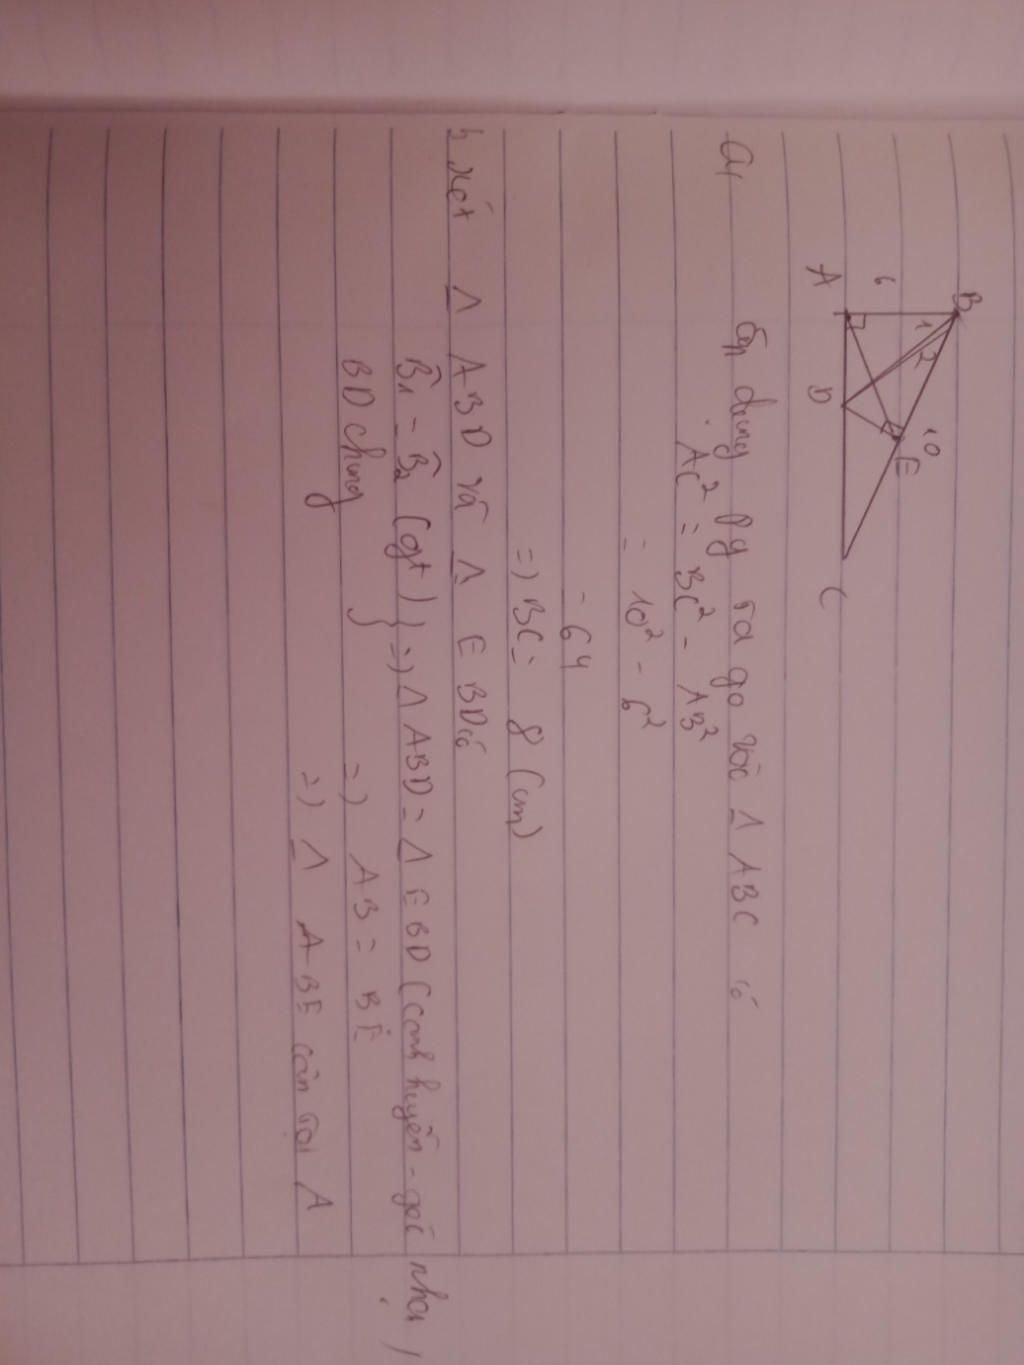 B
1 2
6
10
E
A
D
C
a,
dụng Pg ta go vào Δ ABC có
AC² = BC² - AB²
= 10² - 6²
= 64
=) BC = 8 (cm)
b, xét Δ ABD và Δ EBD có
B̂1 = B̂2 (gt)
BD chung
} =) Δ ABD = Δ EBD (cạnh huyền - góc nhọn)
=) AB = BE
=) Δ ABE cân tại A